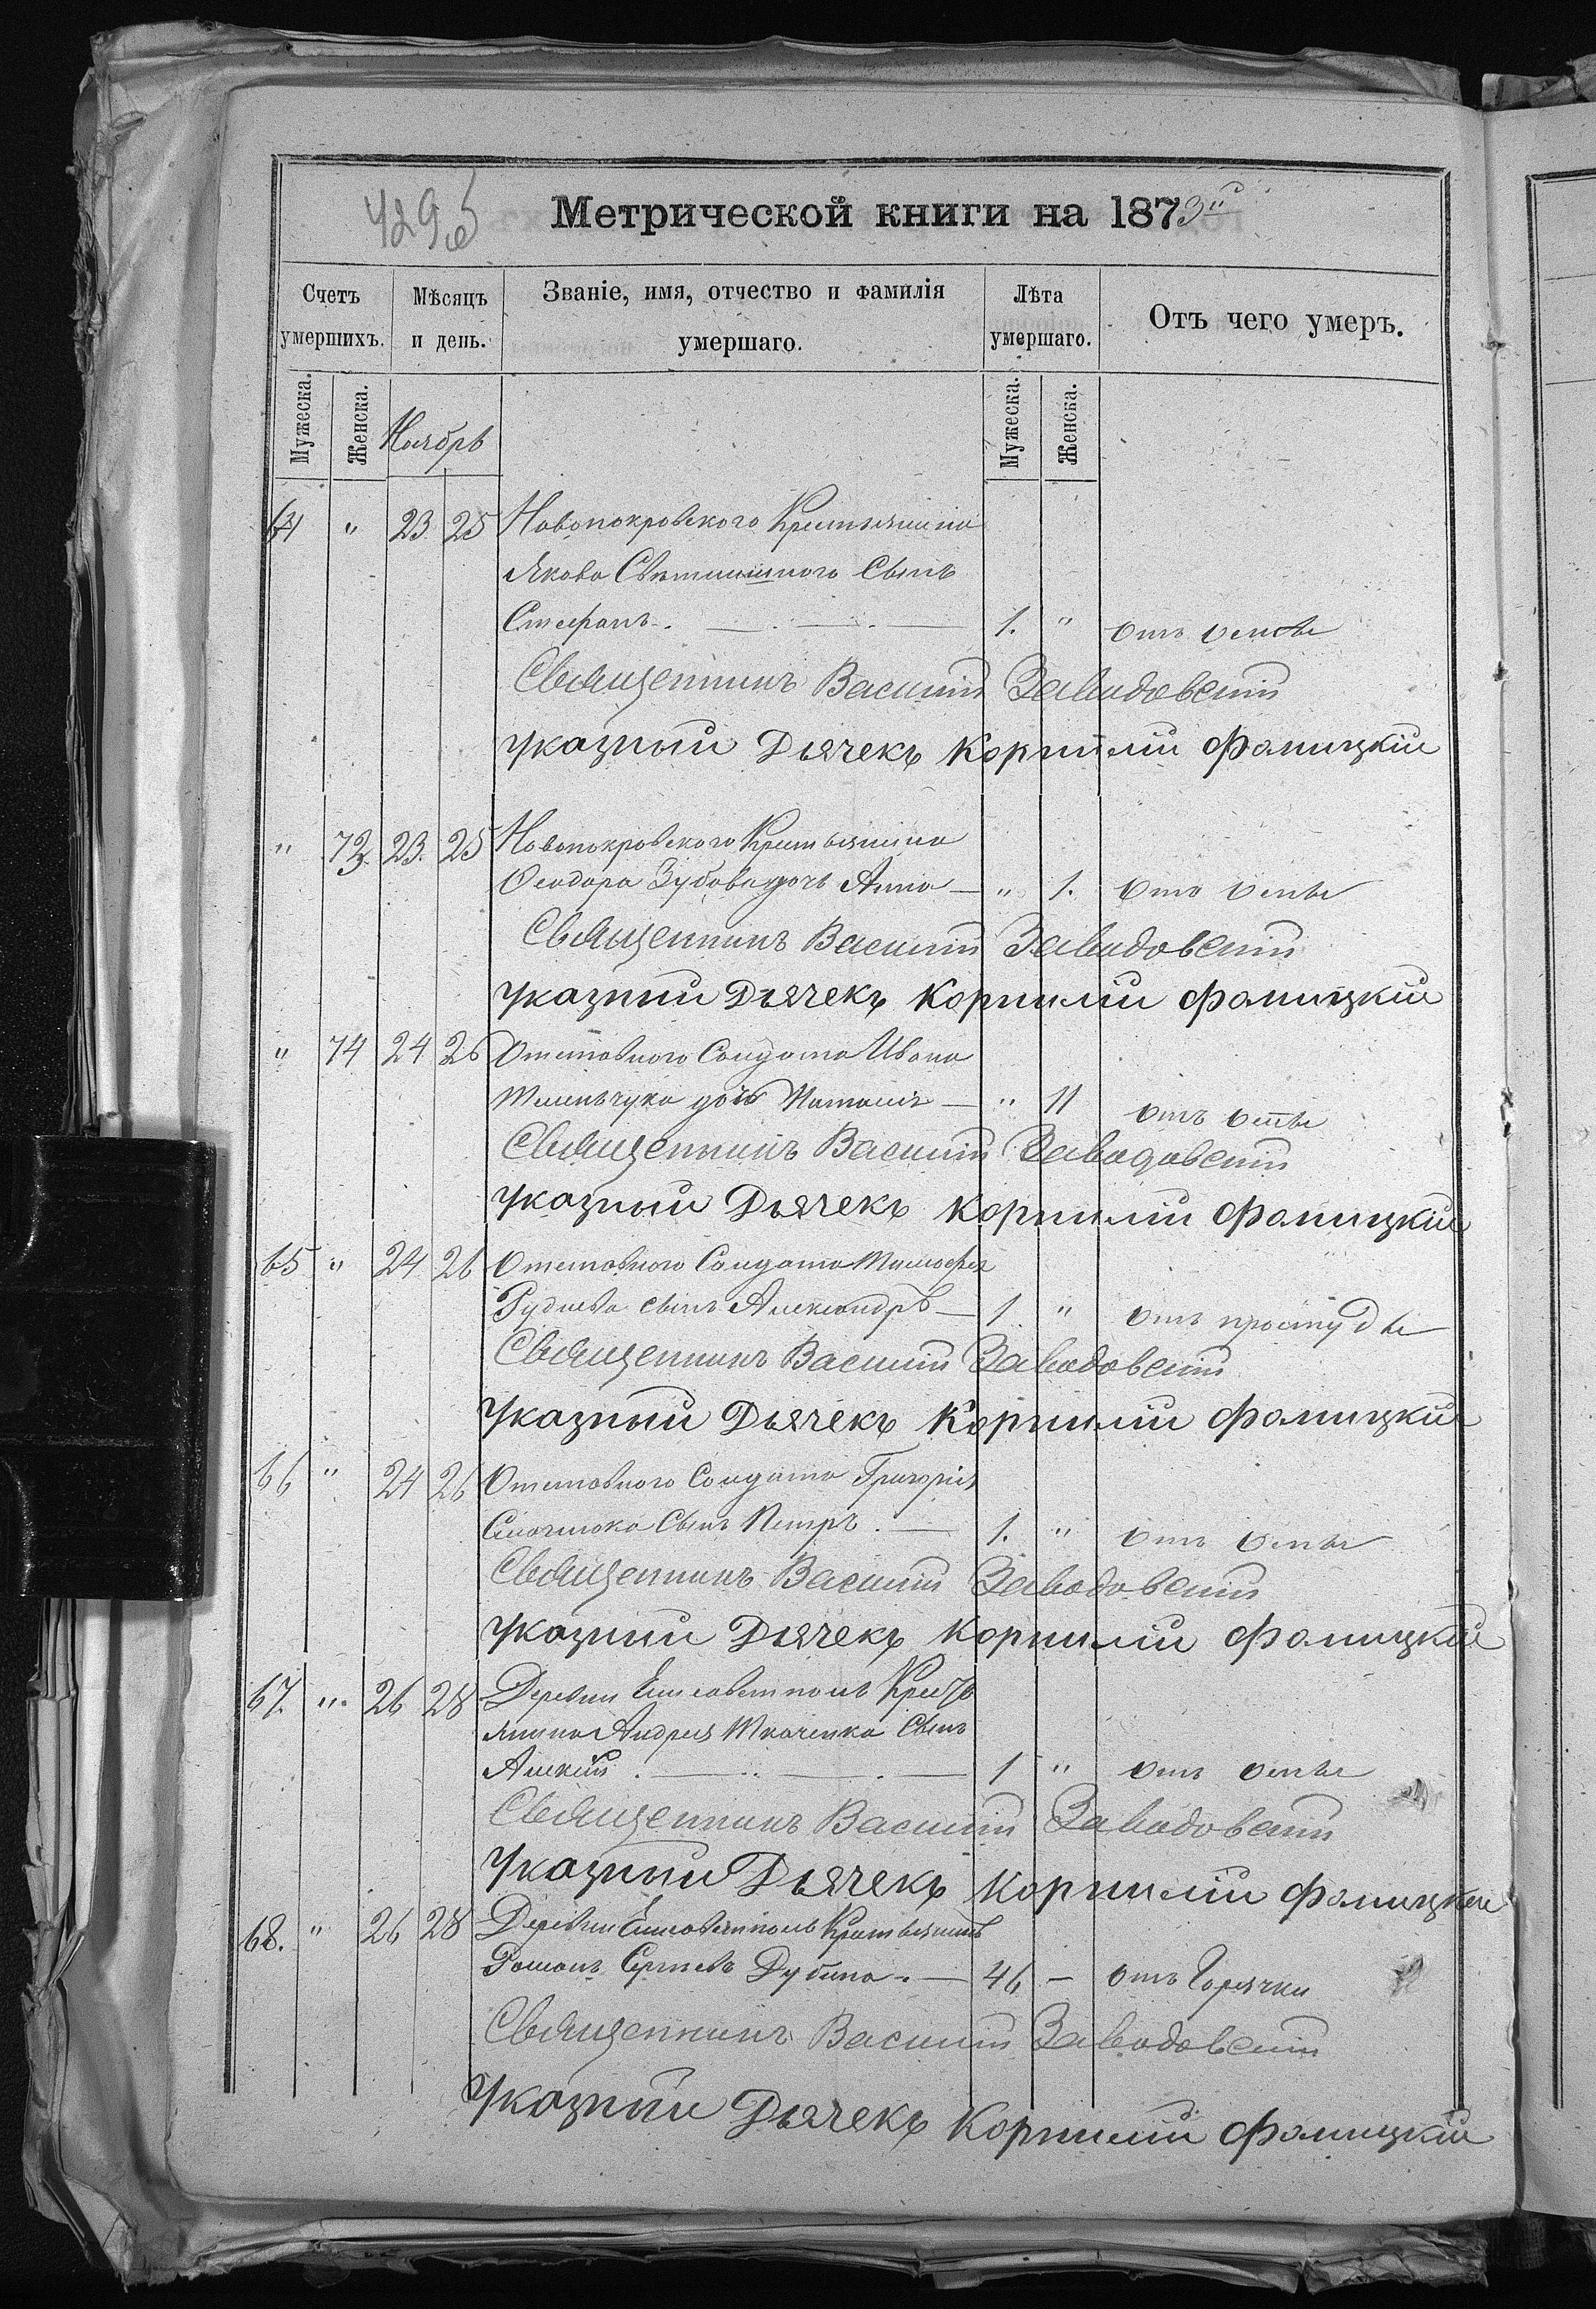 429 об
Метрической книги на 1873й
Счетъ умершихъ. Мѣсяцъ и день. Званіе, имя, отчество и фамилія умершаго. Лѣта умершаго. Отъ чего умеръ.
Мужеска. Женска. Ноябрь Мужеска. Женска.
64 " 23 25 Новопокровского Крестьянина
Якова сынъ
Стефанъ. 1. " отъ оспы
Священникъ Василій Заводовскій
Указный Дьячекъ Корнилій Фомицкій
" 73. 23. 25 Новопокровского Крестьянина
Ѳеодора Зубова дочь Анна " 1. отъ оспы
Священникъ Василій Заводовскій
Указный Дьячекъ Корнилій Фомицкій
" 74 24 26 Отставного Солдата Ивана
дочь " 11 отъ оспы
Священникъ Василій Заводовскій
Указный Дьячекъ Корнилій Фомицкій
65 " 24 26 Отставного Солдата Тимофея
Руднева сынъ Александръ 1 " отъ простуды
Священникъ Василій Заводовскій
Указный Дьячекъ Корнилій Фомицкій
66 " 24 26 Отставного Солдата Григорія
сынъ Петръ. 1. " отъ оспы
Священникъ Василій Заводовскій
Указный Дьячекъ Корнилій Фомицкій
67. " 26 28 Деревни Елисаветполь Кресть
янина Андрея Ткаченка Сынъ
Алексій. 1 " отъ оспы
Священникъ Василій Заводовскій
Указный Дьячекъ Корнилій Фомицкій
68. " 26 28 Деревни Елисаветполь Крестьянинъ
Романъ Сергіевъ Дубина. 46 – отъ Горячки
Священникъ Василій Заводовскій
Указный Дьячекъ Корнилій Фомицкій